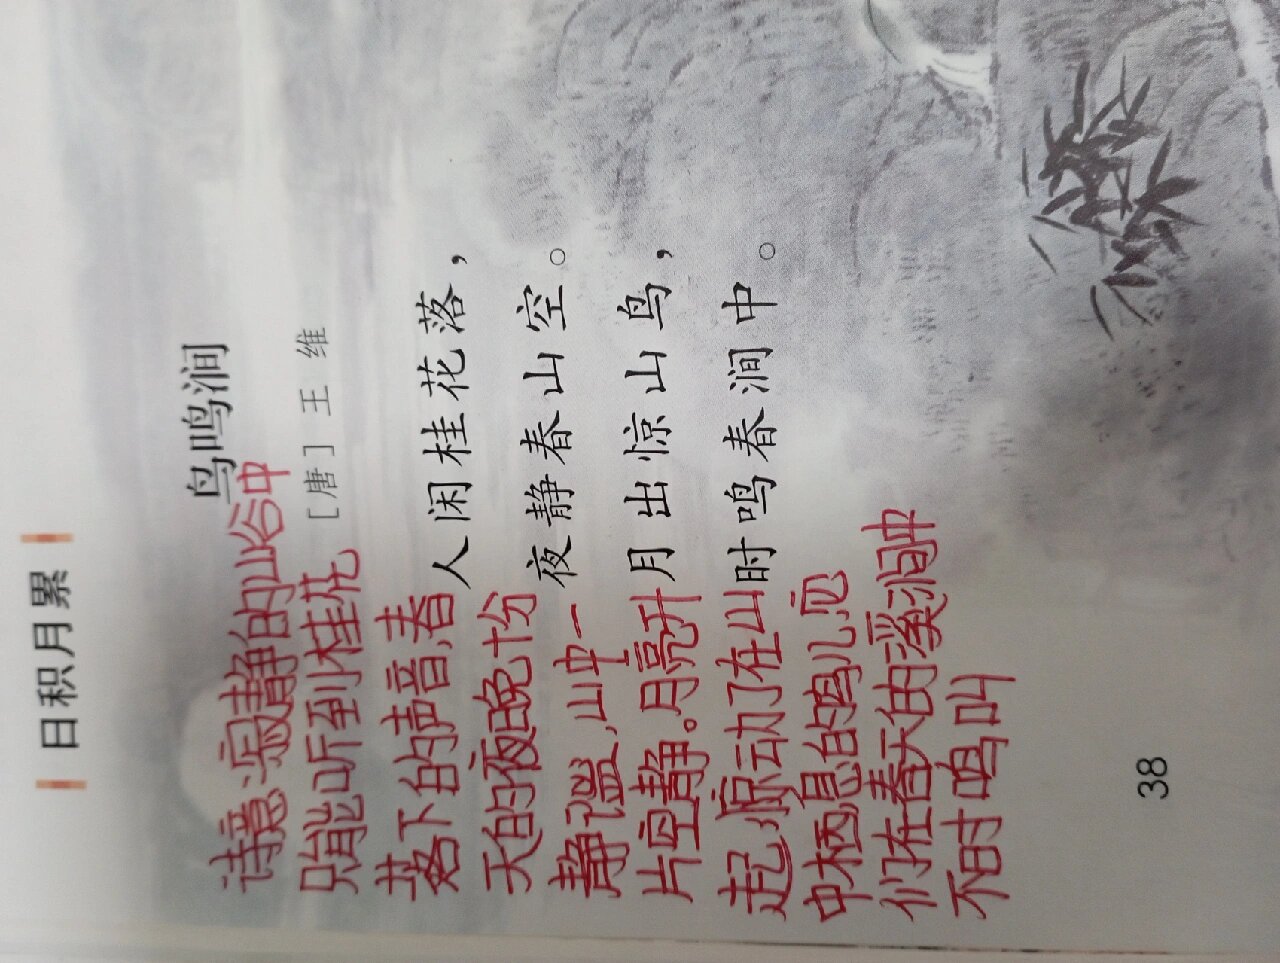 日积月累
鸟鸣涧
[唐] 王维
人闲桂花落，
夜静春山空。
月出惊山鸟，
时鸣春涧中。
诗意：寂静的山谷中
只能听到桂花
落下的声音，春
天的夜晚十分
静谧，山中一
片空静。月亮升
起，惊动了在山
中栖息的鸟儿，它
们在春天的溪涧中
不时鸣叫
38